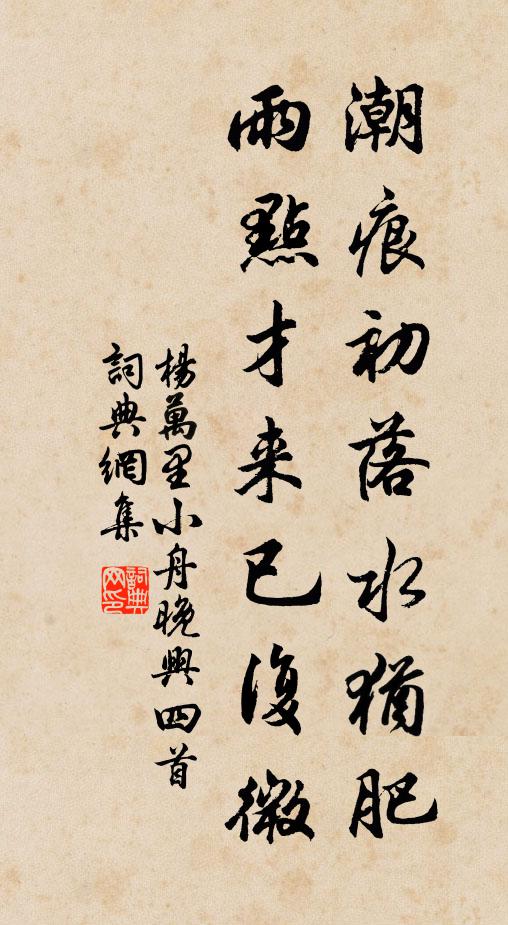 潮痕初落水猶肥
雨點才来已復微
楊萬里小舟晚興四首
詞典網集
詞典网印